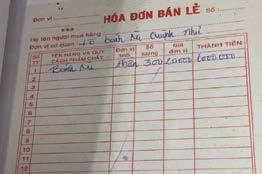 Đơn vị HÓA ĐƠN BÁN LẺ Số
Họ tên người mua hàng
Đơn vị cơ quan Lò bánh mì Quỳnh Như
Số TT TÊN HÀNG VÀ QUY CÁCH PHẨM CHẤT Đơn vị tính Số lượng Giá đơn vị THÀNH TIỀN
1 Bánh mì 300 2.0000
2
3
4
5
6
7
8
9
10
11
12